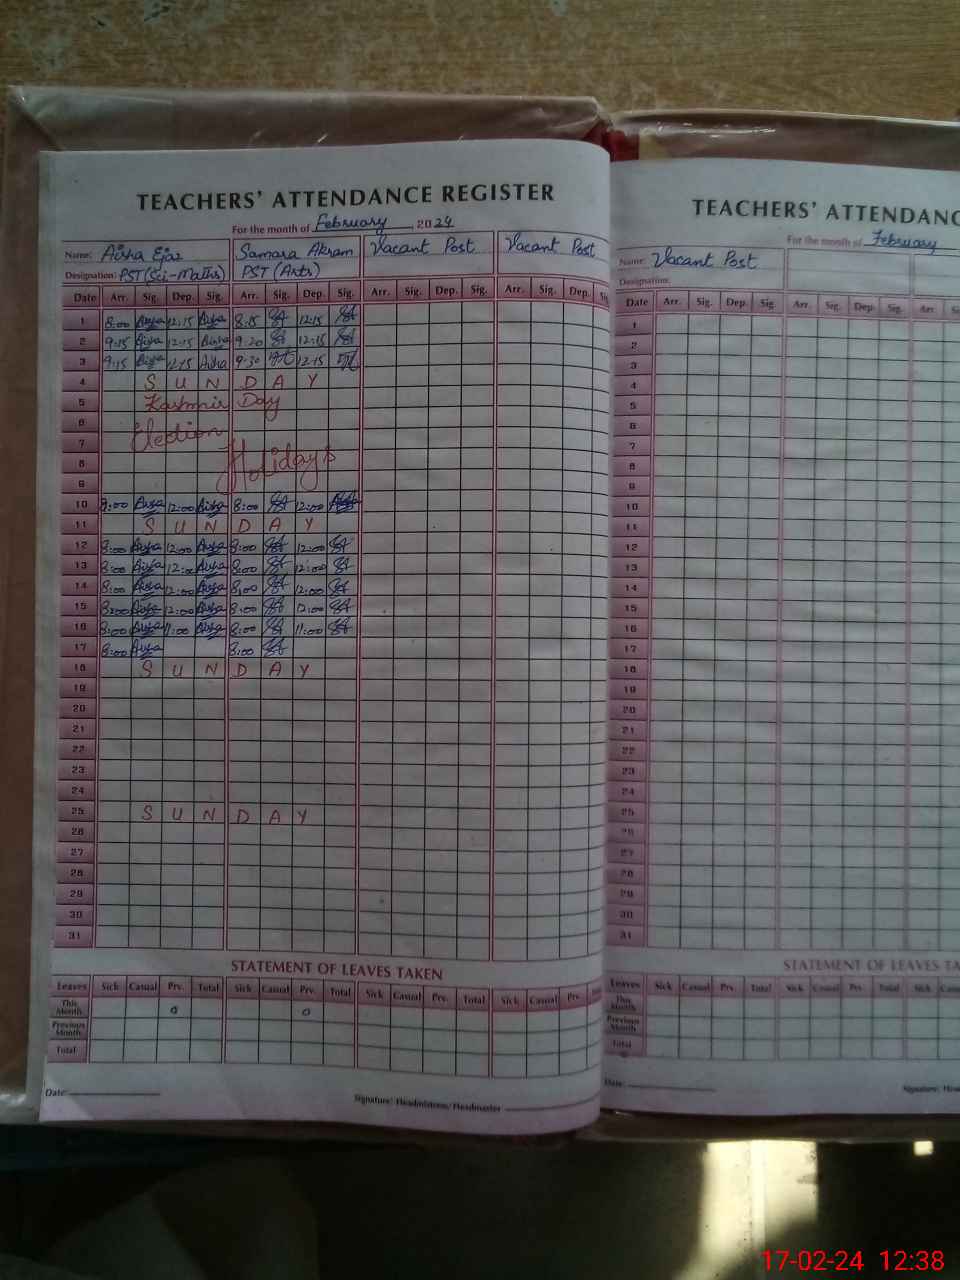 TEACHERS' ATTENDANCE REGISTER
For the month of February 2024
Name: Aisha Ejaz Samara Akram Vacant Post Vacant Post
Designation: PST (Sci-Maths) PST (Arts)
Date Arr. Sig. Dep. Sig. Arr. Sig. Dep. Sig. Arr. Sig. Dep. Sig. Arr. Sig. Dep.
1 8:00 Aisha 12:15 Aisha 8:15 12:15
2 9:15 Aisha 12:15 Aisha 9:20 12:15
3 9:15 Aisha 12:15 Aisha 9:30 12:15
4 S U N D A Y
5 Kashmir Day
6
7 Election
8 Holidays
9
10 8:00 Aisha 12:00 Aisha 8:00 12:00
11 S U N D A Y
12 8:00 Aisha 12:00 Aisha 8:00 12:00
13 8:00 Aisha 12:00 Aisha 8:00 12:00
14 8:00 Aisha 12:00 Aisha 8:00 12:00
15 8:00 Aisha 12:00 Aisha 8:00 12:00
16 8:00 Aisha 11:00 Aisha 8:00 11:00
17 8:00 Aisha 8:00
18 S U N D A Y
19
20
21
22
23
24
25 S U N D A Y
26
27
28
29
30
31
STATEMENT OF LEAVES TAKEN
Leaves Sick Casual Prv. Total Sick Casual Prv. Total Sick Casual Prv. Total Sick Casual Prv.
This Month 0 0
Previous Month
Total
Date: Signature: Headmistress/Headmaster
TEACHERS' ATTENDANC
For the month of February
Name: Vacant Post
Designation:
Date Arr. Sig. Dep. Sig. Arr. Sig. Dep. Sig. Arr. Sig.
1
2
3
4
5
6
7
8
9
10
11
12
13
14
15
16
17
18
19
20
21
22
23
24
25
26
27
28
29
30
31
STATEMENT OF LEAVES TA
Leaves Sick Casual Prv. Total Sick Casual Prv. Total Sick
This Month
Previous Month
Total
Date: Signature:
17-02-24 12:38